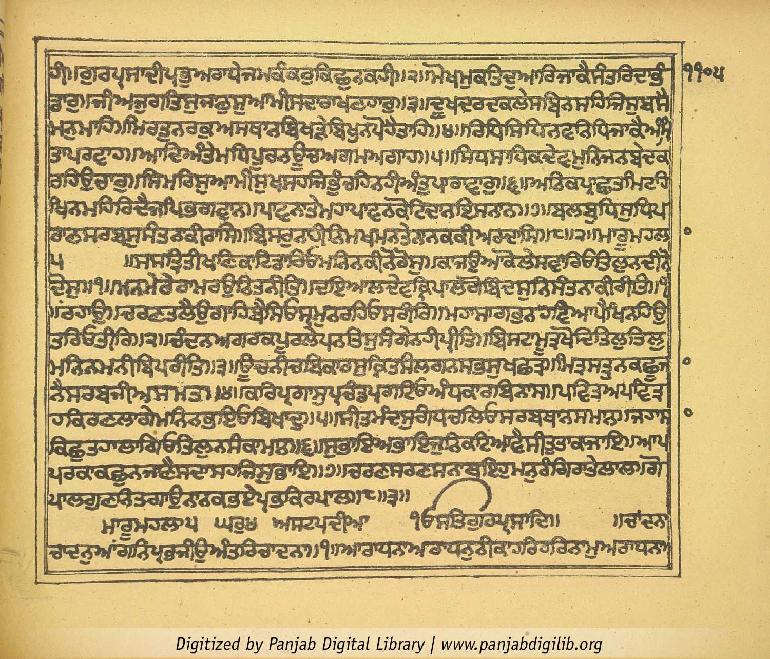 ਹੀ॥ਗੁਰਪ੍ਰਸਾਦੀਪ੍ਰਭੁਅਰਾਧੇਜਮਕੰਕਰੁਕਿਛੁਨਕਹੀ॥੨॥ਮੋਖਮੁਕਤਿਦੁਆਰਿਜਾਕੈਸੰਤਰਿਦਾਭੰ ੧੧੦੫
ਡਾਰੁ॥ਜੀਅਜੁਗਤਿਸੁਜਾਣੁਸੁਆਮੀਸਦਾਰਾਖਣਹਾਰੁ॥੩॥ਦੂਖਦਰਦਕਲੇਸਬਿਨਸਹਿਜਿਸੁਬਸੈ
ਮਨਮਾਹਿ॥ਮਿਰਤੁਨਰਕੁਅਸਥਾਨਬਿਖੜੇਬਿਖੁਨਪੋਹੈਤਾਹਿ॥੪॥ਰਿਧਿਸਿਧਿਨਵਨਿਧਿਜਾਕੈਅੰਮ੍ਰਿ
ਤਾਪਰਵਾਹ॥ਆਦਿਅੰਤੇਮਧਿਪੂਰਨਊਚਅਗਮਅਗਾਹ॥੫॥ਸਿਧਸਾਧਿਕਦੇਵਮੁਨਿਜਨਬੇਦਕ
ਰਹਿਉਚਾਰੁ॥ਸਿਮਰਿਸੁਆਮੀਸੁਖਸਹਜਿਭੁੰਚਹਿਨਹੀਅੰਤੁਪਾਰਾਵਾਰੁ॥੬॥ਅਨਿਕਪ੍ਰਾਛਤਮਿਟਹਿ
ਖਿਨਮਹਿਰਿਦੈਜਪਿਭਗਵਾਨ॥ਪਾਵਨਾਤੇਮਹਾਪਾਵਨਕੋਟਿਦਾਨਇਸਨਾਨ॥੭॥ਬਲਬੁਧਿਸੁਧਿਪ
ਰਾਣਸਰਬਸੁਸੰਤਨਾਕੀਰਾਸਿ॥ਬਿਸਰੁਨਾਹੀਨਿਮਖਮਨਤੇਨਾਨਕਕੀਅਰਦਾਸਿ॥੮॥੨॥ਮਾਰੂਮਹਲਾ
੫ ॥ਸਸਤ੍ਰਿਤੀਖਣਿਕਾਟਿਡਾਰਿਓਮਨਿਨਕੀਨੋਰੋਸੁ॥ਕਾਜੁਉਆਕੋਲੇਸਵਾਰਿਓਤਿਲੁਨਦੀਨੋ
ਦੋਸੁ॥੧॥ਮਨਮੇਰੇਰਾਮਰਉਨਿਤਨੀਤਿ॥ਦਇਆਲਦੇਵਕ੍ਰਿਪਾਲਗੋਬਿੰਦਸੁਨਿਸੰਤਨਾਕੀਰੀਤਿ॥੧
॥ਰਹਾਉ॥ਚਰਣਤਲੈਉਗਾਹਿਬੈਸਿਓਸ੍ਰਮੁਨਰਹਿਓਸਰੀਰਿ॥ਮਹਾਸਾਗਰੁਨਹਵਿਆਪੈਖਿਨਹਿਉ
ਤਰਿਓਤੀਰਿ॥੨॥ਚੰਦਨਅਗਰਕਪੂਰਲੇਪਨਤਿਸੁਸੰਗੇਨਹੀਪ੍ਰੀਤਿ॥ਬਿਸਟਾਮੂਤ੍ਰਖੋਦਿਤਿਲੁਤਿਲੁ
ਮਨਿਨਮਨੀਬਿਪਰੀਤਿ॥੩॥ਊਚਨੀਚਬਿਕਾਰਸੁਕ੍ਰਿਤਸੰਲਗਨਸਭਸੁਖਛਤ੍ਰ॥ਮਿਤ੍ਰਸਤ੍ਰੁਨਕਛੂਜਾ
ਨੈਸਰਬਜੀਅਸਮਤ॥੪॥ਕਰਿਪ੍ਰਗਾਸੁਪ੍ਰਚੰਡਪ੍ਰਗਟਿਓਅੰਧਕਾਰਬਿਨਾਸ॥ਪਵਿਤ੍ਰਅਪਵਿਤ੍ਰ
ਹਕਿਰਣਲਾਗੇਮਨਿਨਭਇਓਬਿਖਾਦੁ॥੫॥ਸੀਤਮੰਦਸੁਗੰਧਚਲਿਓਸਰਬਥਾਨਸਮਾਨ॥ਜਹਾਸਾ
ਕਿਛੁਤਹਾਲਾਗਿਓਤਿਲੁਨਸੰਕਾਮਾਨ॥੬॥ਸੁਭਾਇਅਭਾਇਜੁਨਿਕਟਿਆਵੈਸੀਤੁਤਾਕਾਜਾਇ॥ਆਪ
ਪਰਕਾਕਛੁਨਜਾਣੈਸਦਾਸਹਜਿਸੁਭਾਇ॥੭॥ਚਰਣਸਰਣਸਨਾਥਇਹੁਮਨੁਰੰਗਿਰਾਤੇਲਾਲ॥ਗੋ
ਪਾਲਗੁਣਨਿਤਗਾਉਨਾਨਕਭਏਪ੍ਰਭਕਿਰਪਾਲ॥੮॥੩॥
ਮਾਰੂਮਹਲਾ੫ ਘਰੁ੪ ਅਸਟਪਦੀਆ ੧ਓਸਤਿਗੁਰਪ੍ਰਸਾਦਿ॥ ॥ਚਾਦਨਾ
ਚਾਦਨੁਆਂਗਨਿਪ੍ਰਭਜੀਉਅੰਤਰਿਚਾਦਨਾ॥੧॥ਆਰਾਧਨਾਅਰਾਧਨੁਨੀਕਾਹਰਿਹਰਿਨਾਮੁਅਰਾਧਨਾ
Digitized by Panjab Digital Library | www.panjabdigilib.org